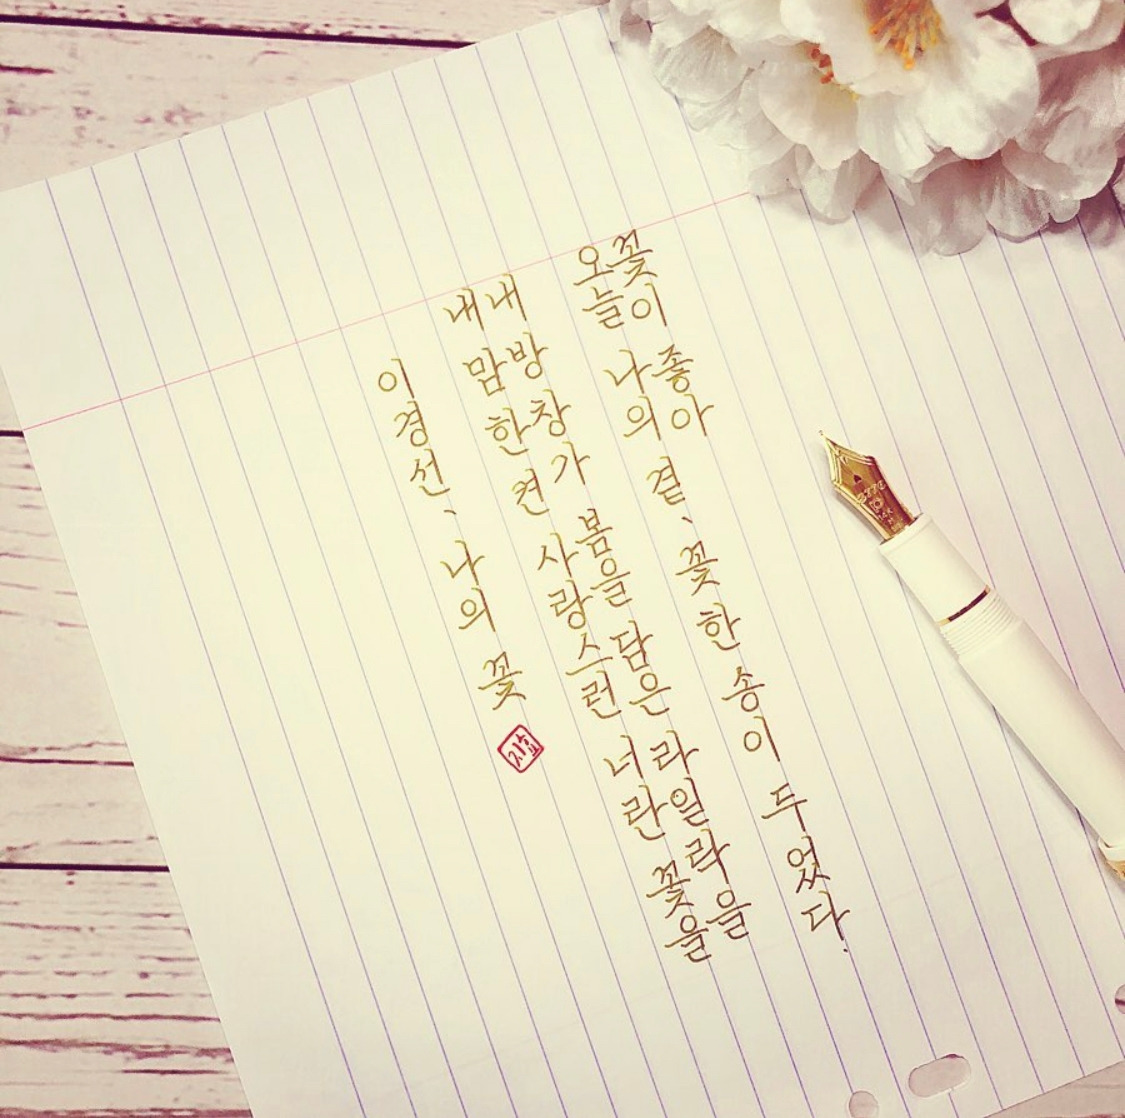 꽃이 좋아
오늘 나의 곁, 꽃 한 송이 두었다.
내 방 창가 봄을 담은 라일락을
내 맘 한 켠 사랑스런 너란 꽃을
이경선, 나의 꽃